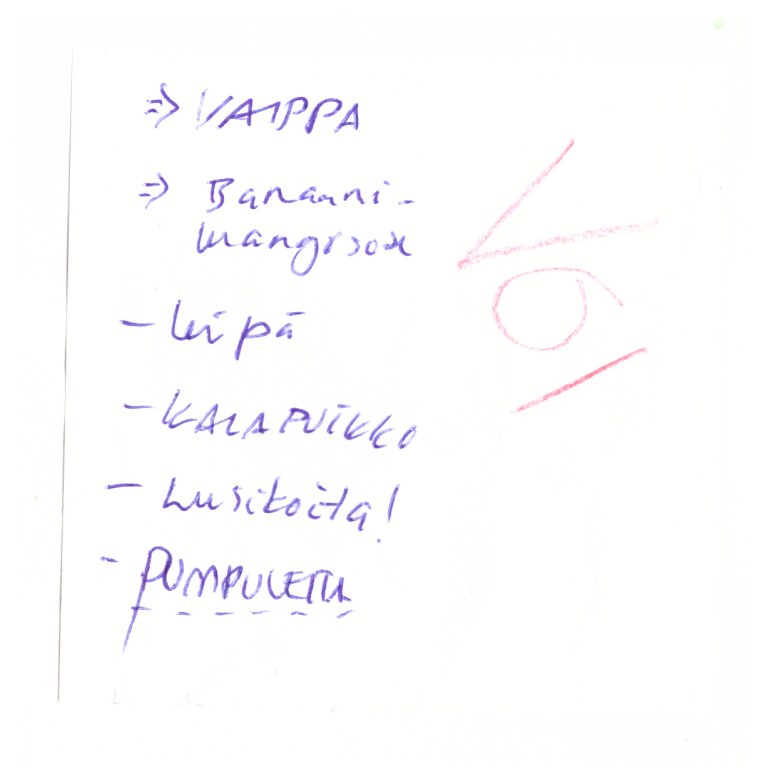 ⇒ VAIPPA
⇒ Banaani-
mangosose
- leipä
- KALAPUIKKO
- Lusikoita!
- PUMPULEITA